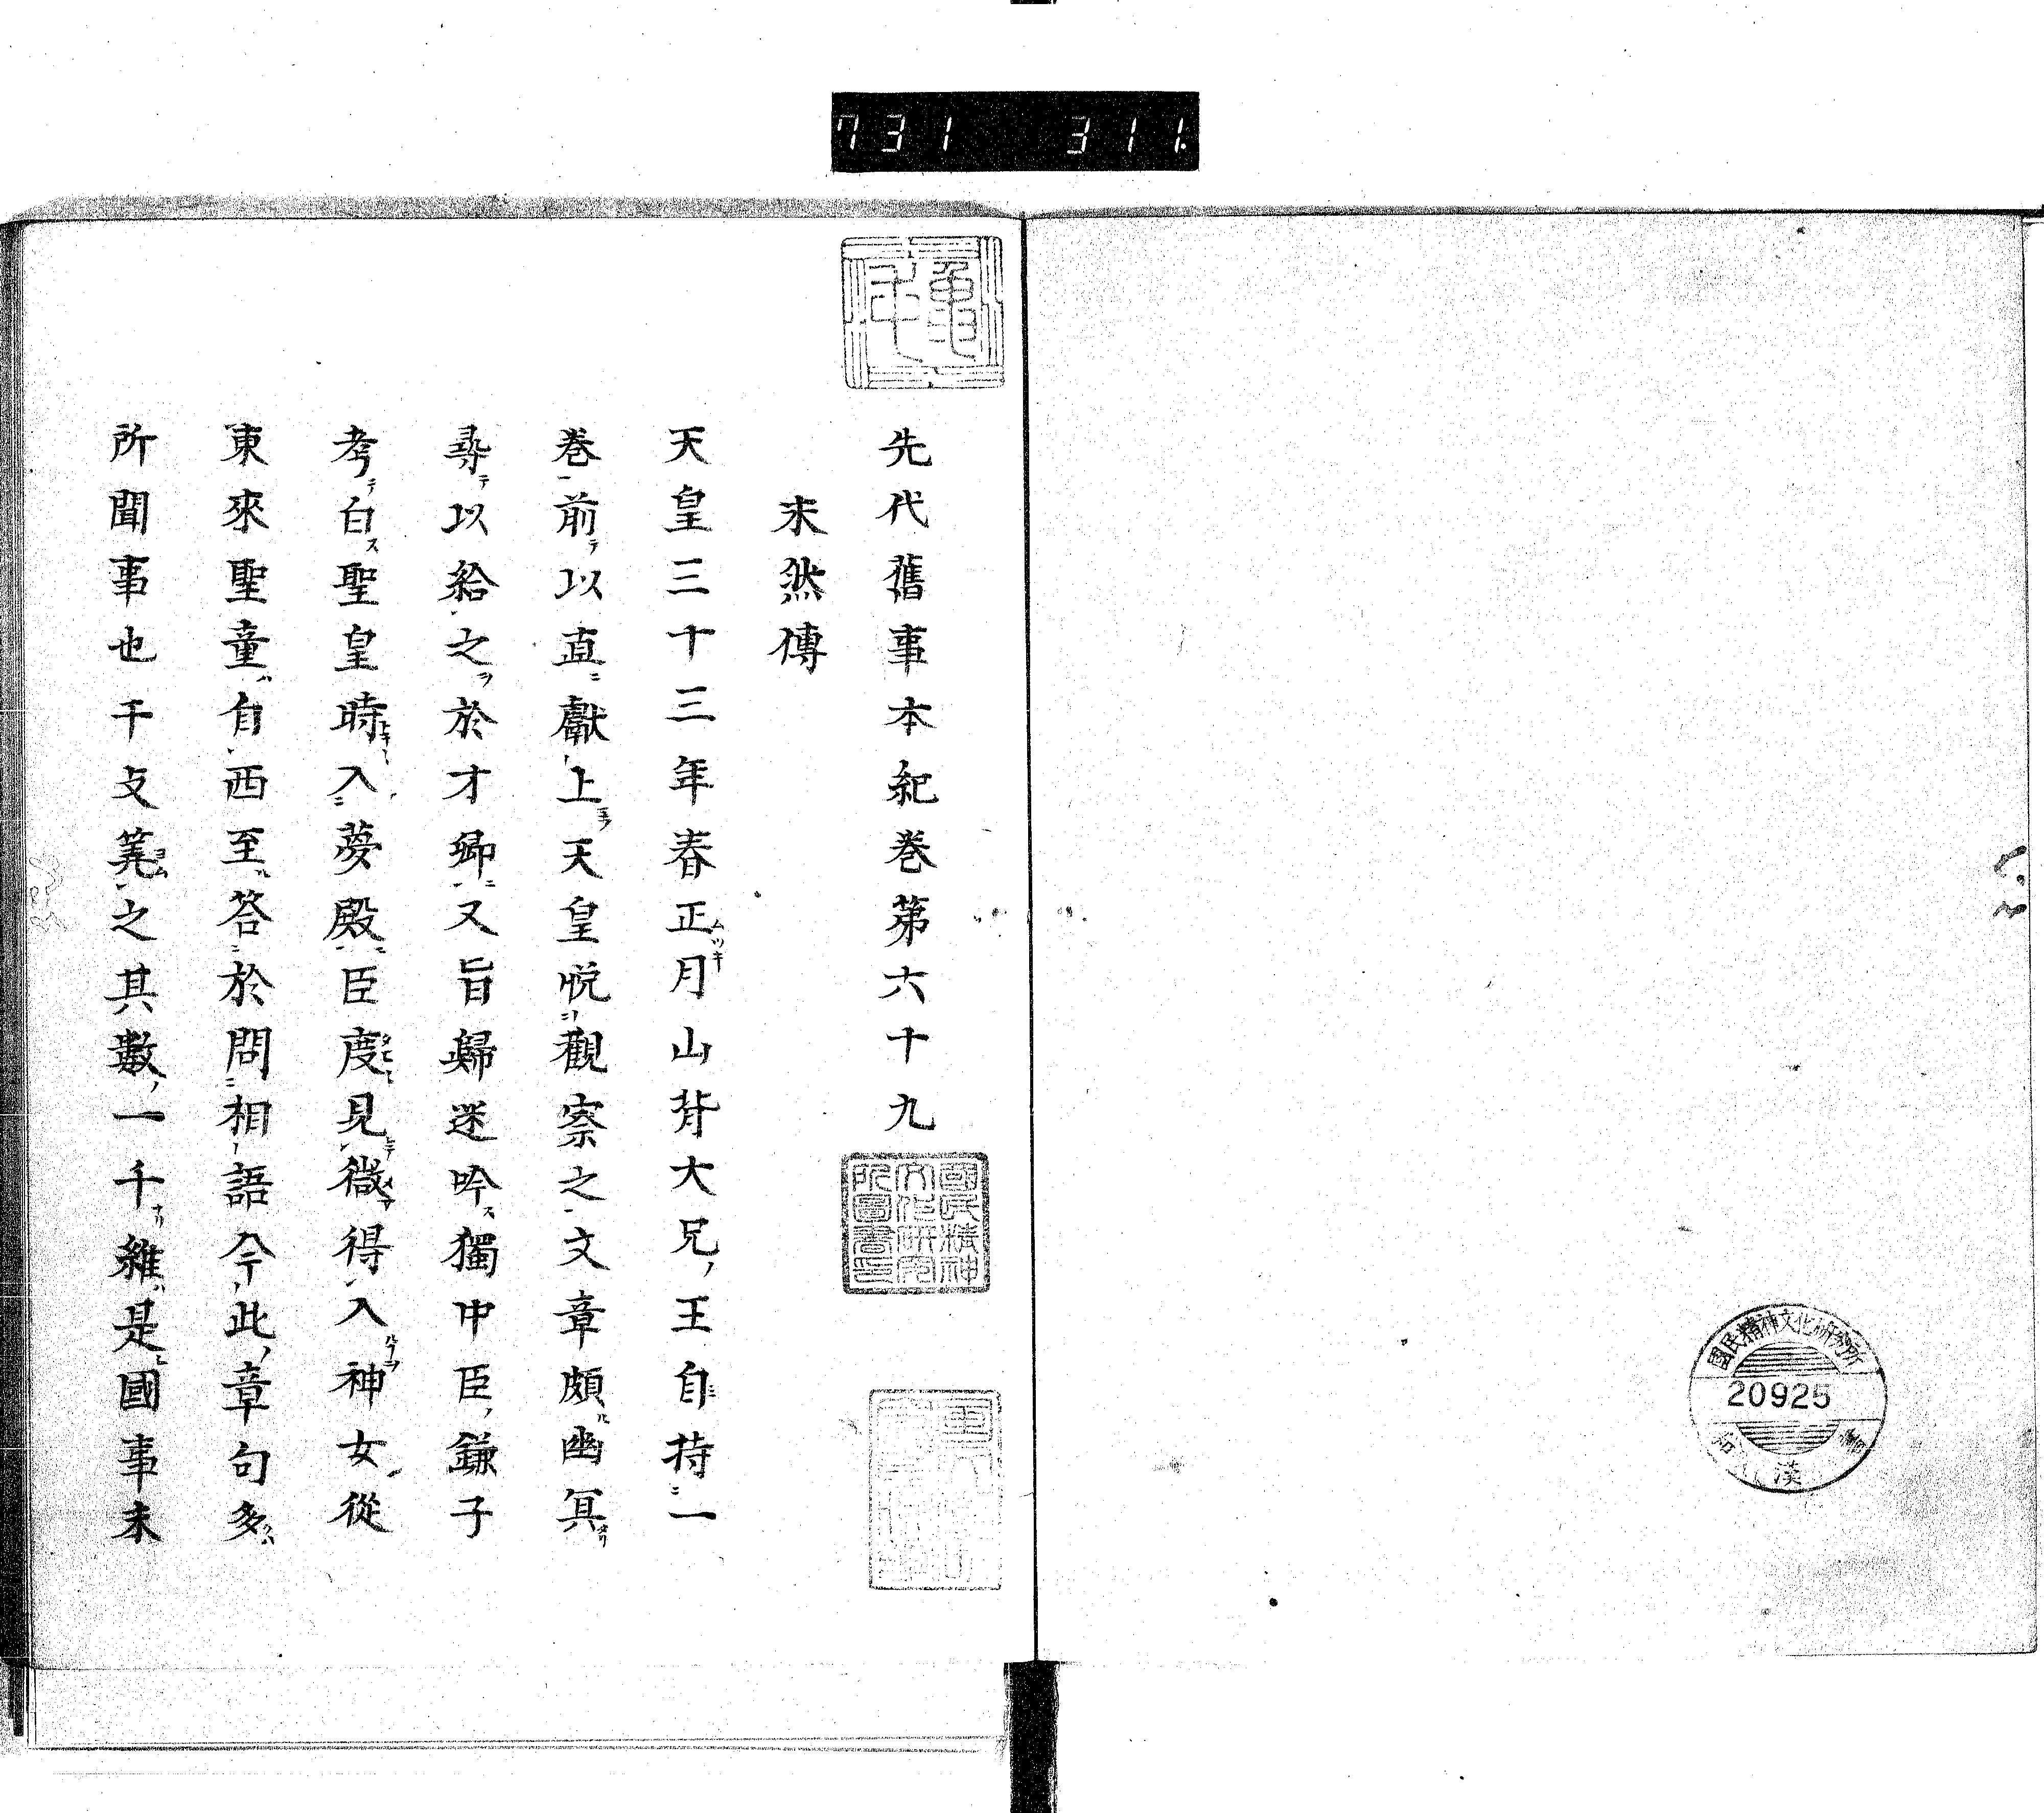 731 311.
國民精神文化研究所
20925
漢
龜年
國民精神
文化研究
所圖書印
先代舊事本紀巻第六十九
未然傳
天皇三十三年春正月山背大兄王自持一
巻前以直獻上天皇悦觀察之文章頗幽冥
尋以給之於才卿又旨歸迷吟獨中臣鎌子
考白聖皇時入夢殿臣度見微得入神女從
東來聖童自西至答於問相語今此章句多
所聞事也干支筭之其數一千雖是國事未